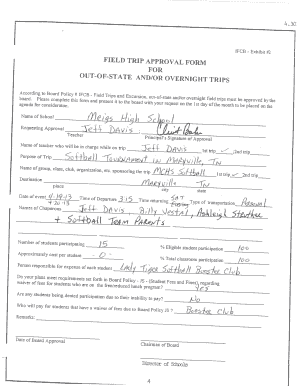 4.30
IFCB - Exhibit #2
FIELD TRIP APPROVAL FORM
FOR
OUT-OF-STATE AND/OR OVERNIGHT TRIPS
According to Board Policy # IFCB - Field Trips and Excursion, out-of-state and/or overnight field trips must be approved by the
board. Please complete this form and present it to the board with your request on the 1st day of the month to be placed on the
agenda for consideration.
Name of School Meigs High School
Requesting Approval Jeff Davis
Teacher Principal's Signature of Approval
Name of teacher who will be in charge while on trip Jeff Davis 1st trip ✓ 2nd trip
Purpose of Trip Softball Tournament in Maryville, TN
Name of group, class, club, organization, etc. sponsoring the trip MCHS Softball 1st trip ✓ 2nd trip
Destination Maryville TN
place city state
Date of event 4-19-13 4-20-13 Time of Departure 3:15 Time returning SAT Evening Type of transportation Personal
Names of Chaperones Jeff Davis, Billy Vestal, Ashleigh
+ Softball Team Parents
Number of students participating 15 % Eligible student participation 100
Approximately cost per student -0- % Total classroom participation 100
Person responsible for expenses of each student Lady Tiger Softball Booster Club
Do your plans meet requirements set forth in Board Policy - JS - (Student Fees and Fines), regarding
waiver of fees for students who are on the free/reduced lunch program? Yes
Are any students being denied participation due to their inability to pay? No
Who will pay for students that have a waiver of fees due to Board Policy JS? Booster Club
Remarks:
Date of Board Approval Chairman of Board
Director of Schools
4